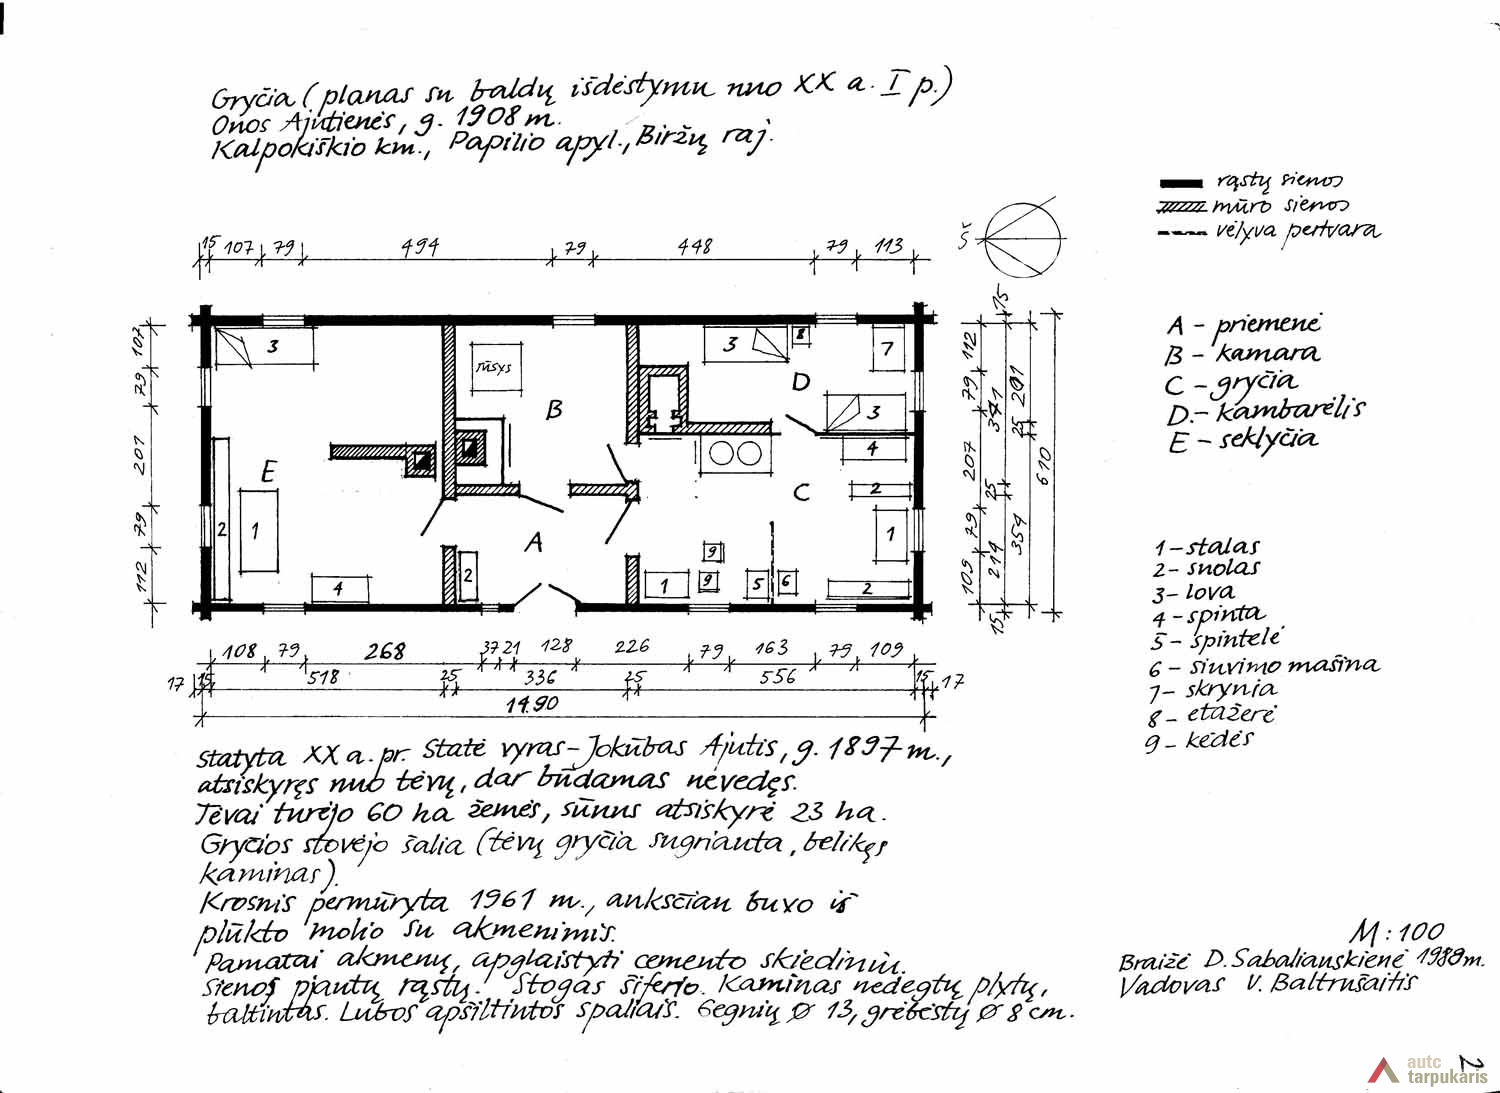 Gryčia (planas su baldų išdėstymu nuo XX a. I p.)
Onos Ajutienės, g. 1908 m.
Kalpokiškio km., Papilio apyl., Biržų raj.
rąstų sienos
mūro sienos
vėlyva pertvara
Š
15 107 79 494 79 448 79 113
107 79 207 79 112
3
rūsys
3
8
7
B
D
3
E
4
C
2
2
1
A
1
9
2
4
1
9
5
6
2
15
112 79 207 79 109
341 25 214 15
201 25 354
610
A – priemenė
B – kamara
C – gryčia
D. – kambarėlis
E – seklyčia
1 – stalas
2 – suolas
3 – lova
4 – spinta
5 – spintelė
6 – siuvimo mašina
7 – skrynia
8 – etažerė
9 – kėdės
108 79 268 37 21 128 226 79 163 79 109
17 15 518 25 336 25 556 15 17
14.90
Statyta XX a. pr. Statė vyras – Jokūbas Ajutis, g. 1897 m.,
atsiskyręs nuo tėvų, dar būdamas nevedęs.
Tėvai turėjo 60 ha žemės, sūnus atsiskyrė 23 ha.
Gryčios stovėjo šalia (tėvų gryčia sugriauta, belikęs
kaminas).
Krosnis permūryta 1961 m., anksčiau buvo iš
plūkto molio su akmenimis.
Pamatai akmenų, apglaistyti cemento skiediniu.
Sienos pjautų rąstų. Stogas šiferio. Kaminas nedegtų plytų,
baltintas. Lubos apšiltintos spaliais. Gegnių Ø 13, grebėstų Ø 8 cm.
M : 100
Braižė D. Sabaliauskienė 1989 m.
Vadovas V. Baltrušaitis
2
autc
tarpukaris